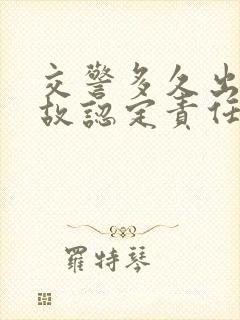 交警多久出
故認定責任
羅特琴